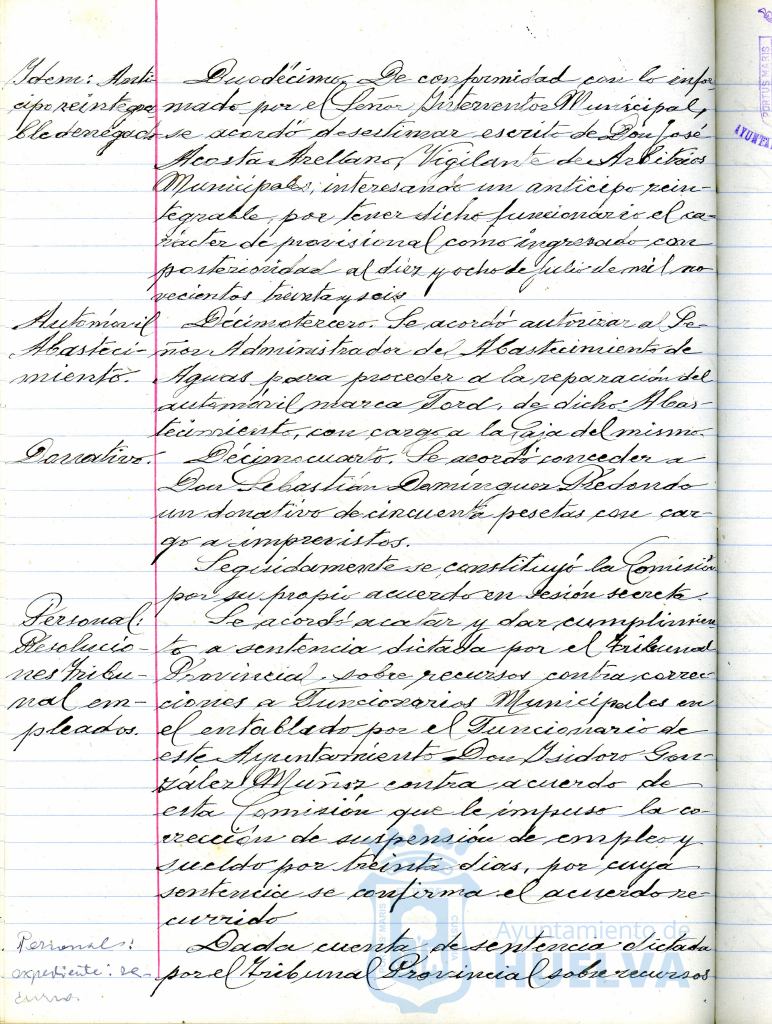 Idem: Anti-
cipo reintegra-
ble denegado
Duodécimo. De conformidad con lo infor-
mado por el Señor Interventor Municipal,
se acordó desestimar escrito de Don José
Acosta Arellano, Vigilante de Arbitrios
Municipales, interesando un anticipo rein-
tegrable, por tener dicho funcionario el ca-
rácter de provisional como ingresado con
posterioridad al diez y ocho de julio de mil no
vecientos treinta y seis
Automóvil
Abasteci-
miento.
Décimotercero. Se acordó autorizar al Se-
ñor Administrador del Abastecimiento de
Aguas para proceder a la reparación del
automóvil marca Ford, de dicho Abas-
tecimiento, con cargo a la Caja del mismo.
Donativo.
Décimocuarto. Se acordó conceder a
Don Sebastián Domínguez Redondo
un donativo de cincuenta pesetas con car-
go a imprevistos.
Seguidamente se constituyó la Comisión
por su propio acuerdo en sesión secreta.
Personal:
Resolucio-
nes Tribu-
nal em-
pleados.
Se acordó acatar y dar cumplimien
to a sentencia dictada por el Tribunal
Provincial sobre recursos contra correc-
ciones a Funcionarios Municipales en
el entablado por el Funcionario de
este Ayuntamiento Don Isidoro Gon-
zález Muñoz contra acuerdo de
esta Comisión que le impuso la co-
rrección de suspensión de empleo y
sueldo por treinta dias, por cuya
sentencia se confirma el acuerdo re-
currido
Personal:
expediente: re-
curso.
Dada cuenta de sentencia dictada
por el Tribunal Provincial sobre recursos
Ayuntamiento de
HUELVA
PORTUS MARIS